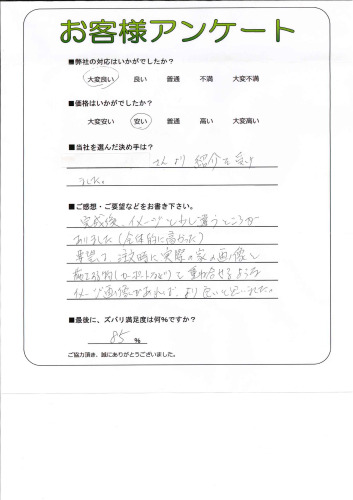 お客様アンケート
■弊社の対応はいかがでしたか?
大変良い 良い 普通 不満 大変不満
■価格はいかがでしたか?
大変安い 安い 普通 高い 大変高い
■当社を選んだ決め手は?
さんより紹介を受け
ました。
■ご感想・ご要望などをお書き下さい。
完成後、イメージと少し違うところが
ありました(全体的に高かった)
要望は、注文時に実際の家の画像と
施工する物(カーポートなど)を重ね合せるような
イメージ画像があれば、より良いと思いました。
■最後に、ズバリ満足度は何%ですか?
85 %
ご協力頂き、誠にありがとうございました。